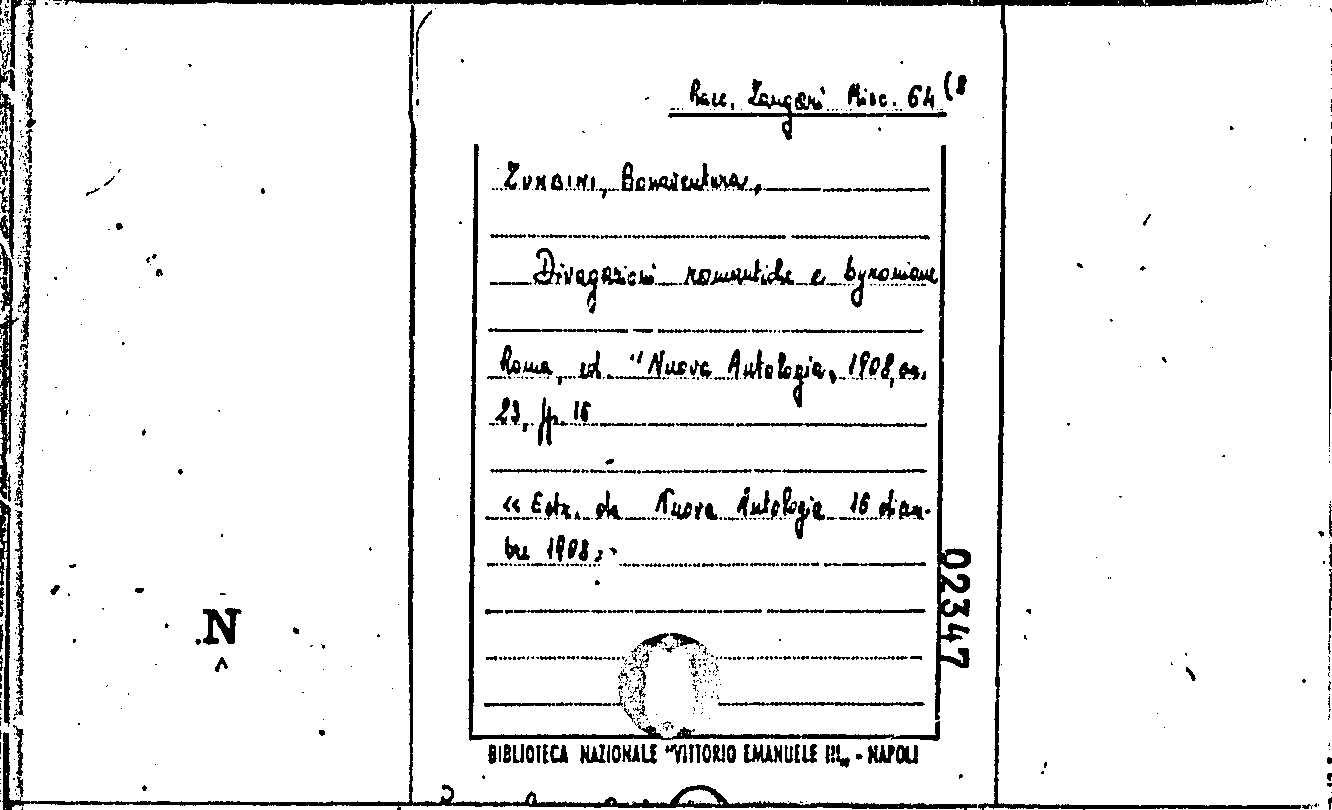 Racc. Zangari Misc. 64 (8
ZUMBINI, Bonaventura,
Divagazioni romantiche e byroniane
Roma, ed. "Nuova Antologia„ 1908, an.
23, pp. 16
« Estr. da Nuova Antologia 16 dicem-
bre 1908.
02347
N
BIBLIOTECA NAZIONALE "VITTORIO EMANUELE III„ - NAPOLI